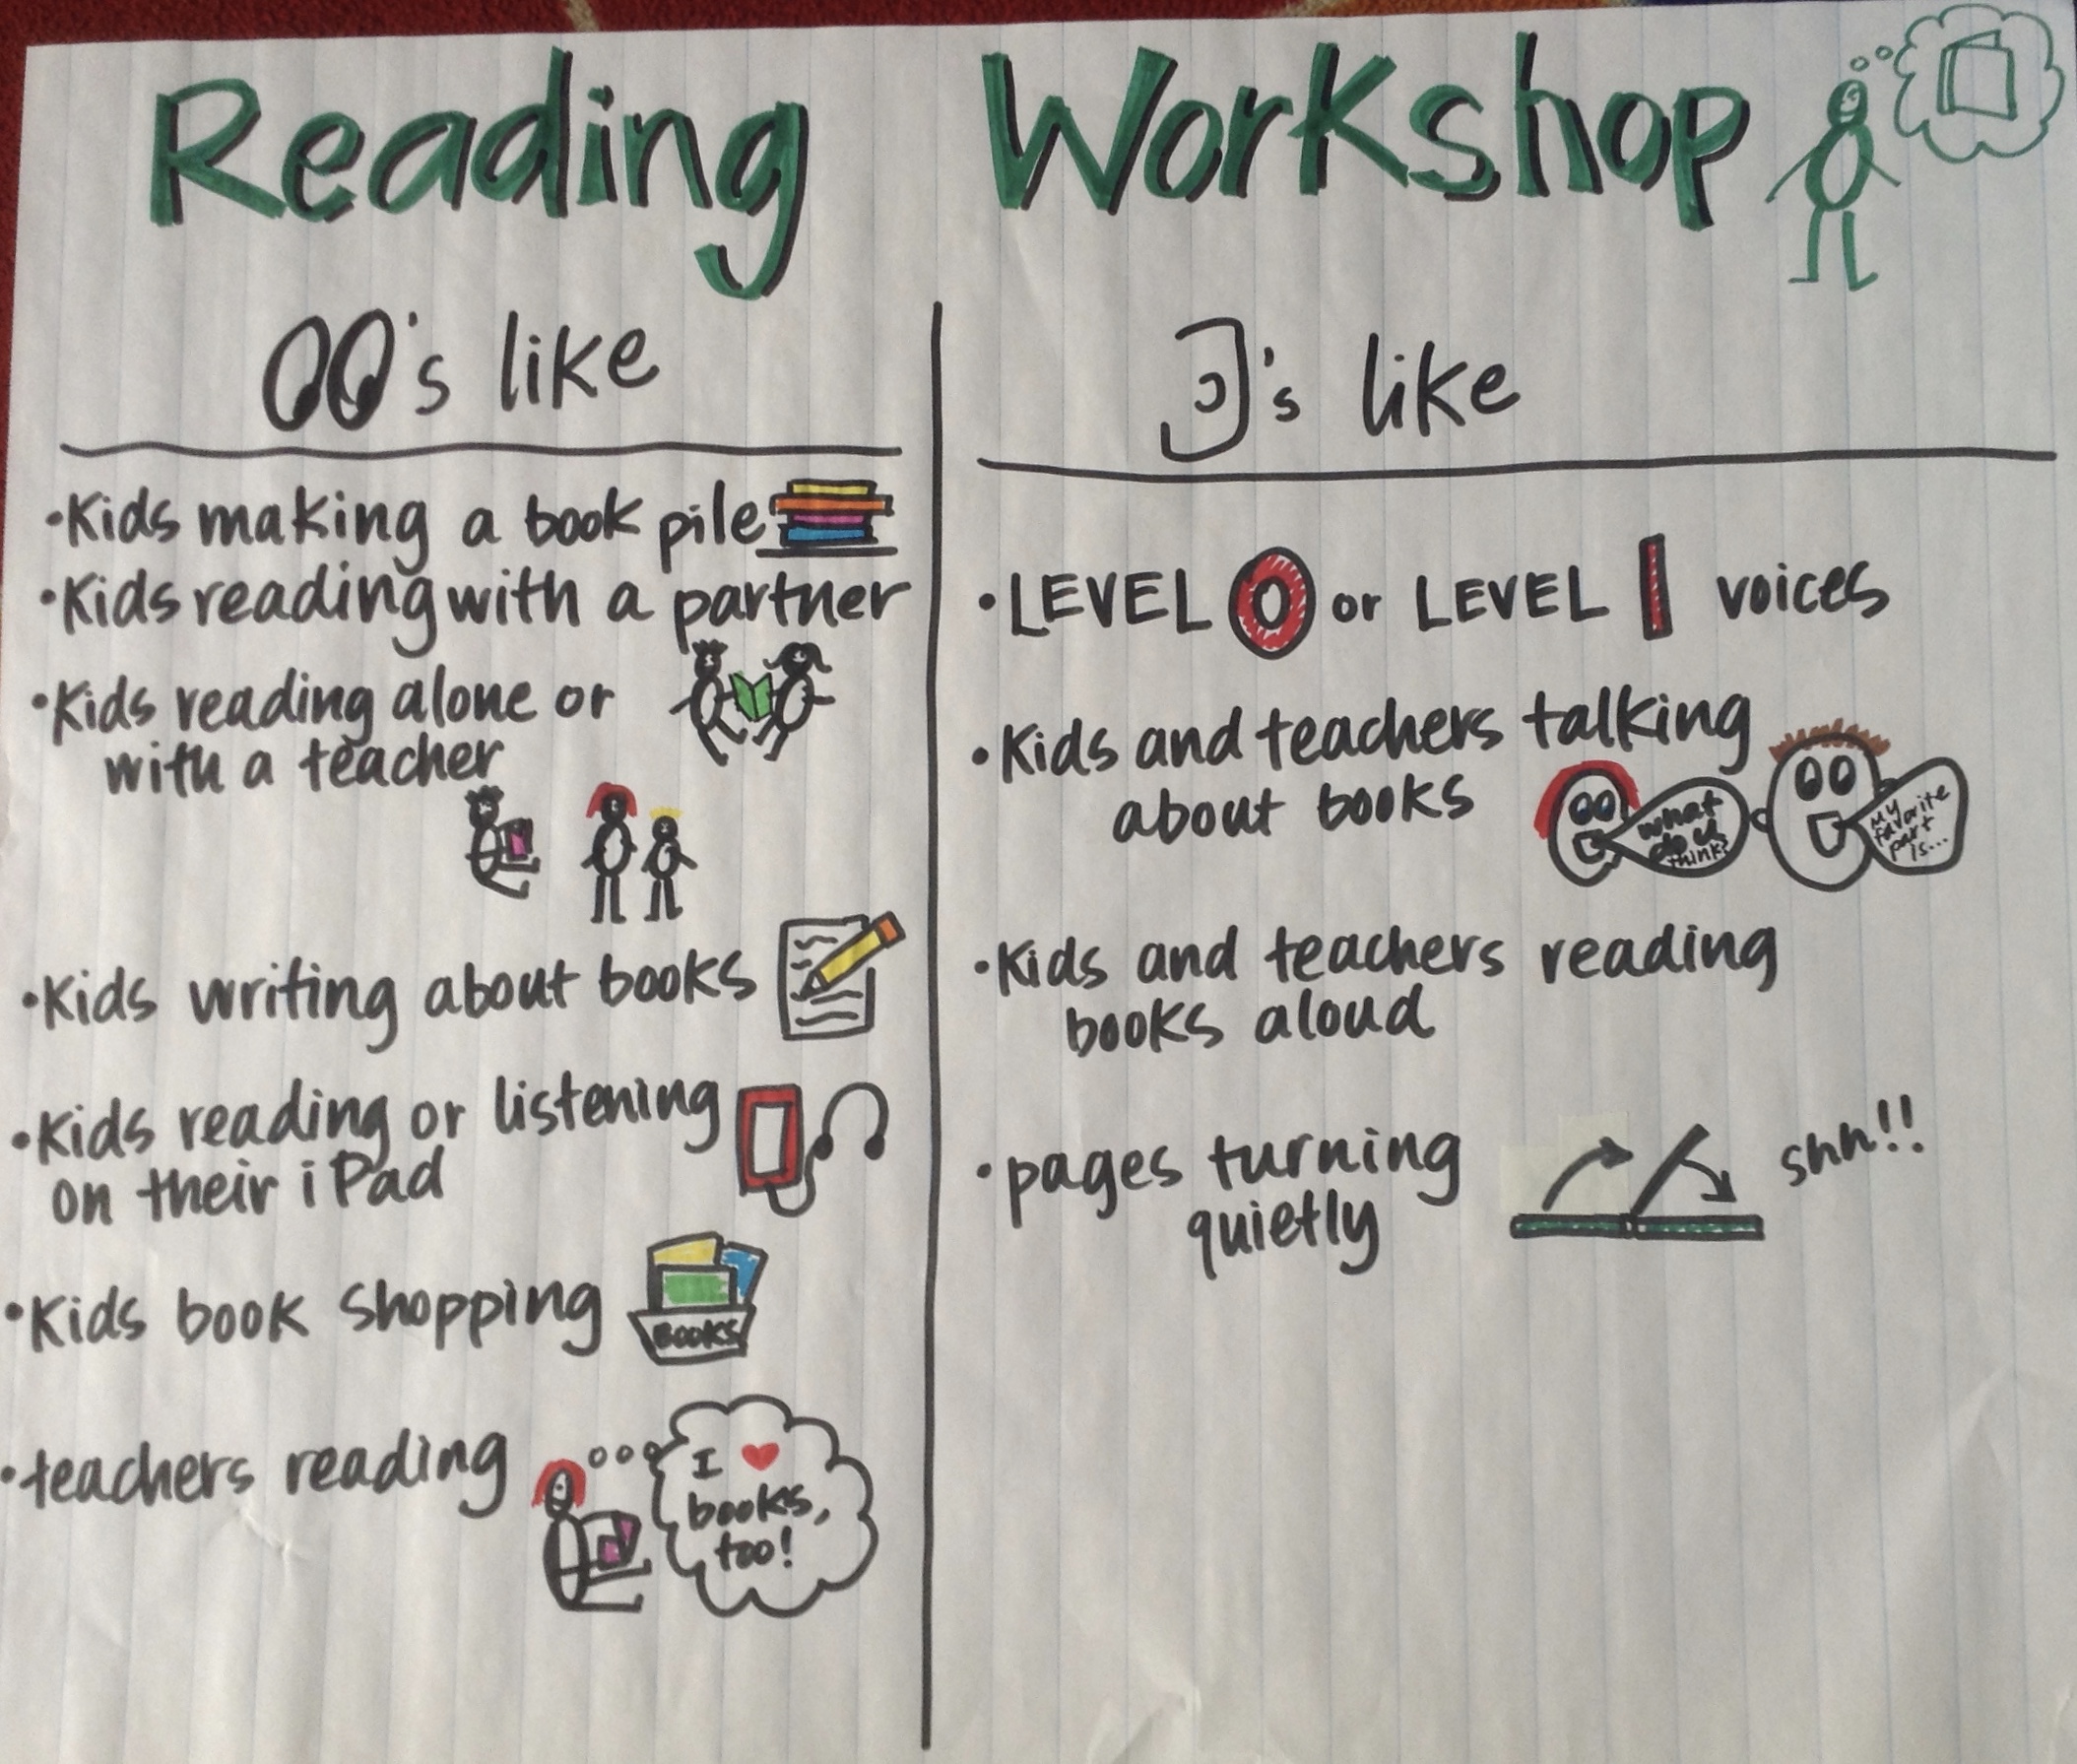 Reading Workshop
's like
•Kids making a book pile
•Kids reading with a partner
•Kids reading alone or
with a teacher
•Kids writing about books
•Kids reading or listening
on their iPad
•Kids book shopping
BOOKS
•teachers reading
I ♥
books,
too!
's like
•LEVEL 0 or LEVEL 1 voices
•Kids and teachers talking
about books
what
do u
think?
My
favorite
part
is...
•Kids and teachers reading
books aloud
•pages turning
quietly
shh!!